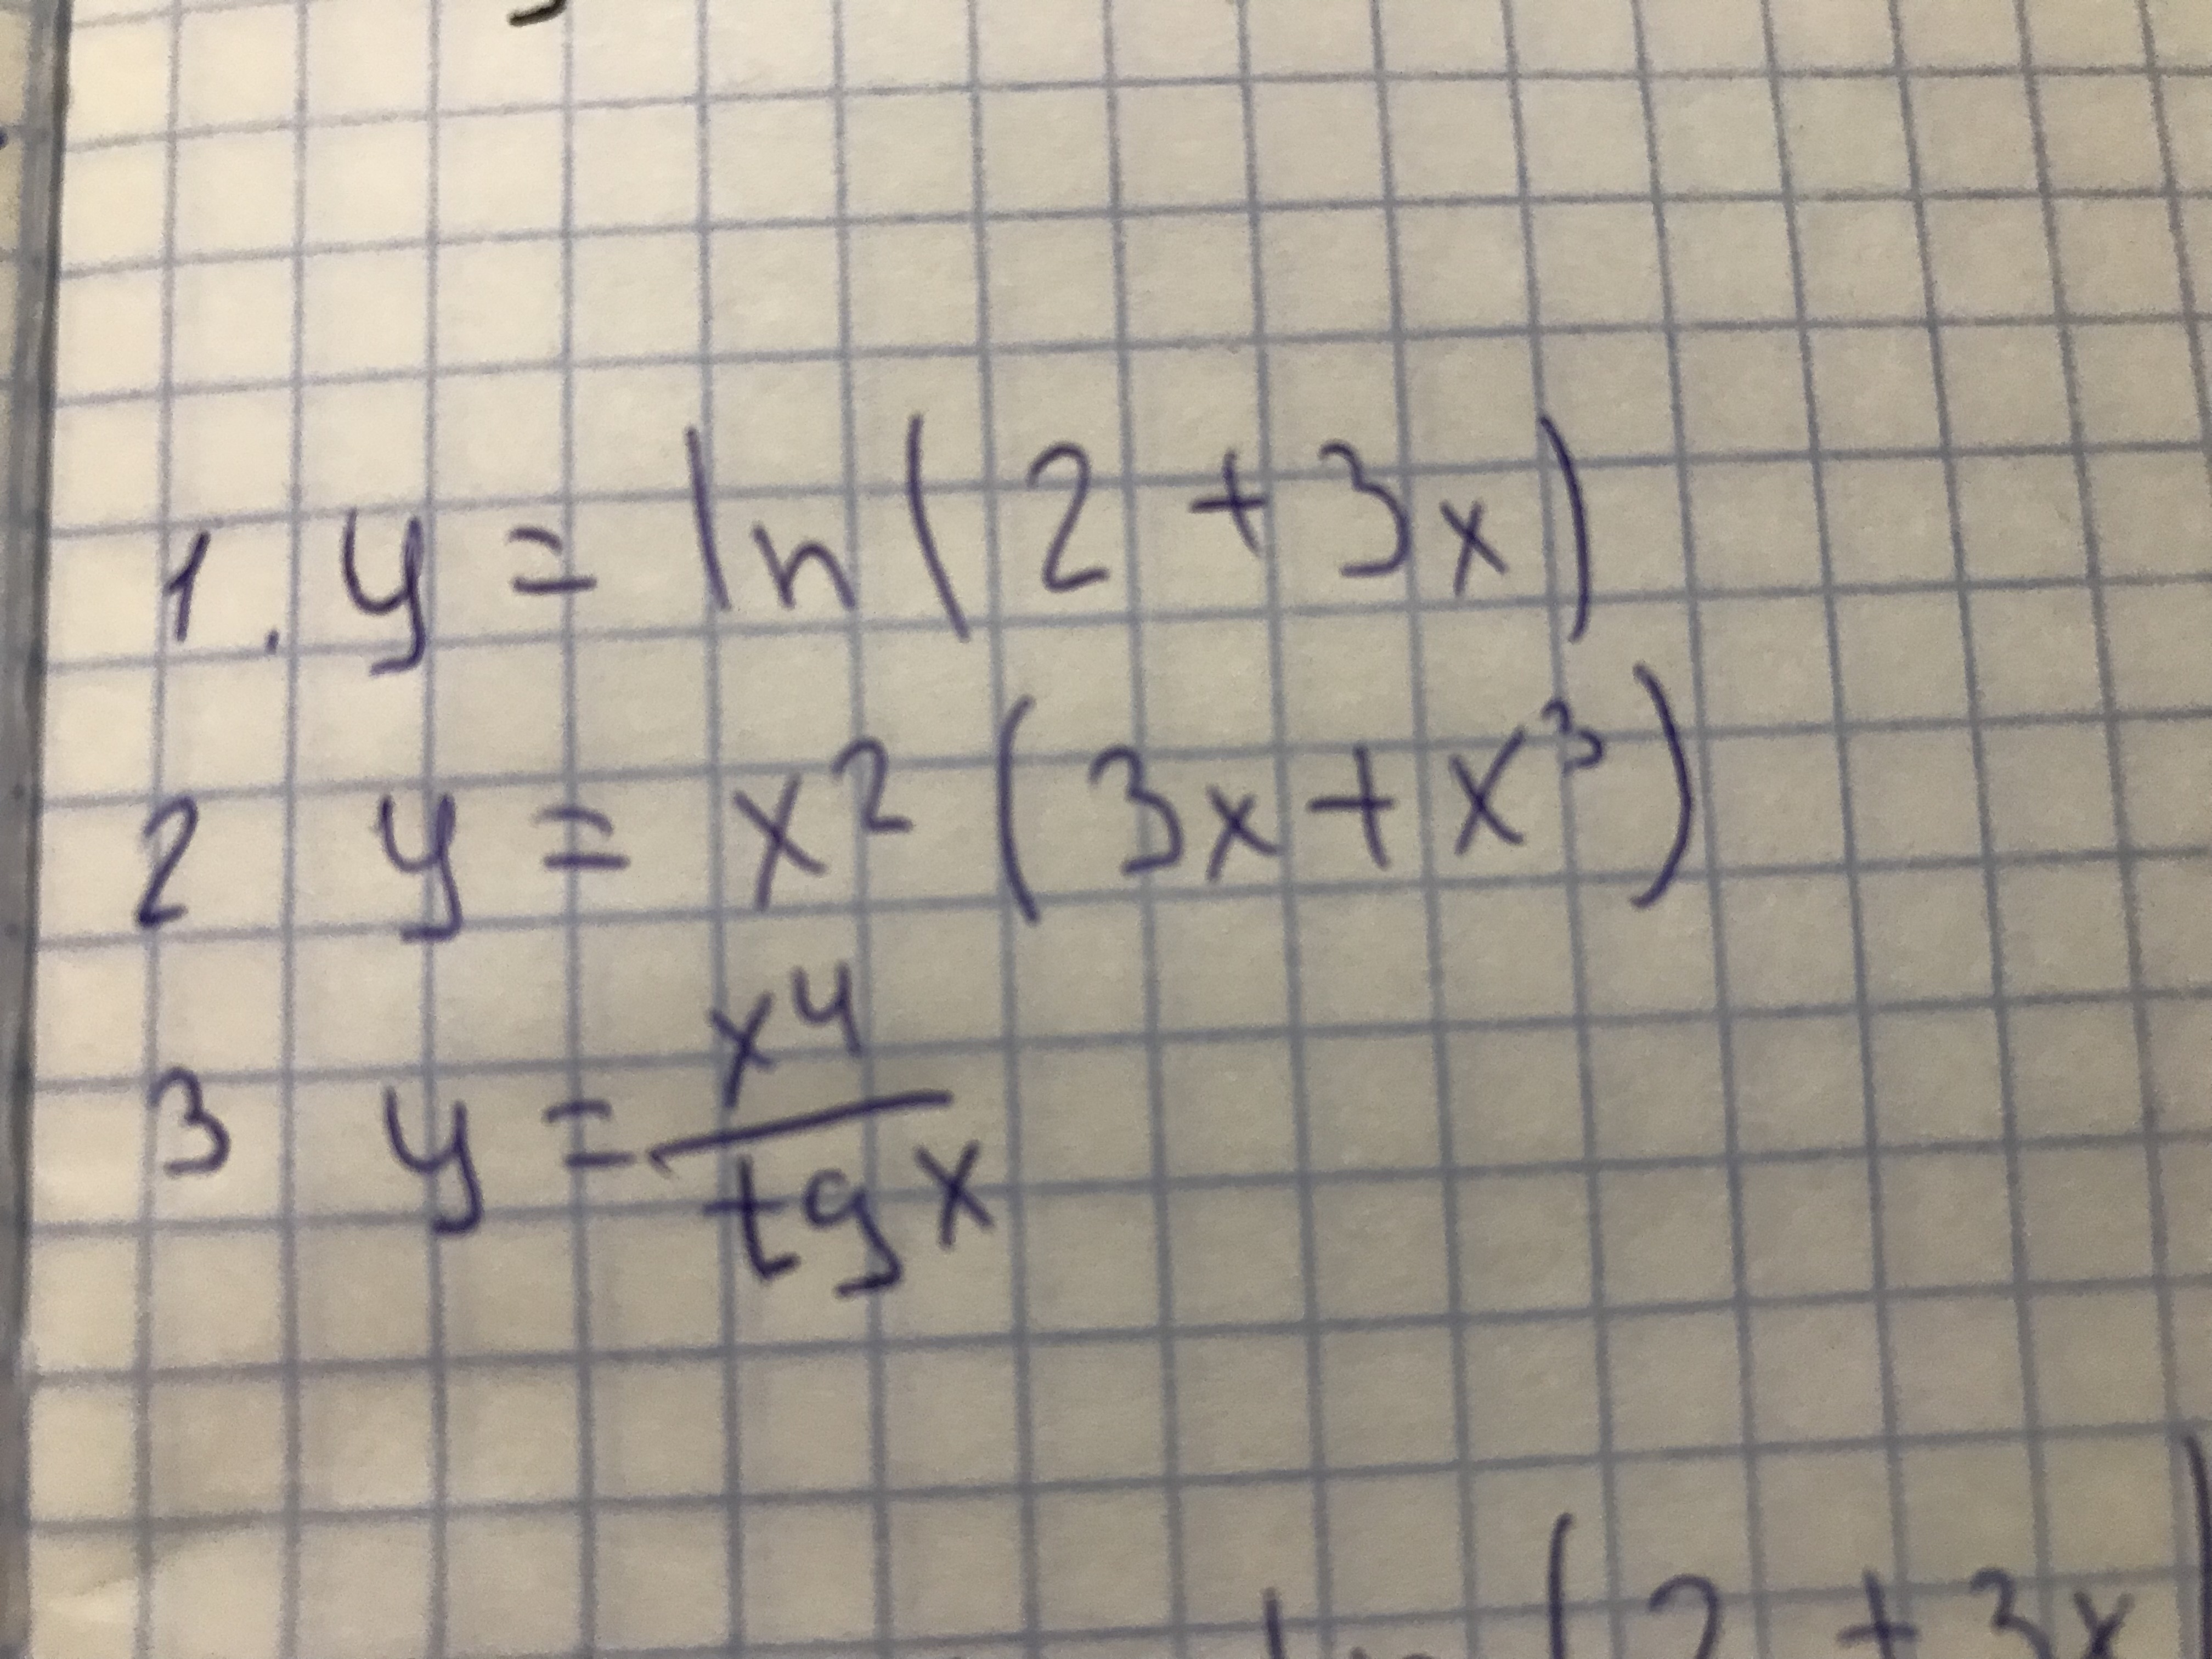 1. y = ln(2+3x)
2 y = x² (3x+x³)
3 y = x⁴/tg x
(2+3x)